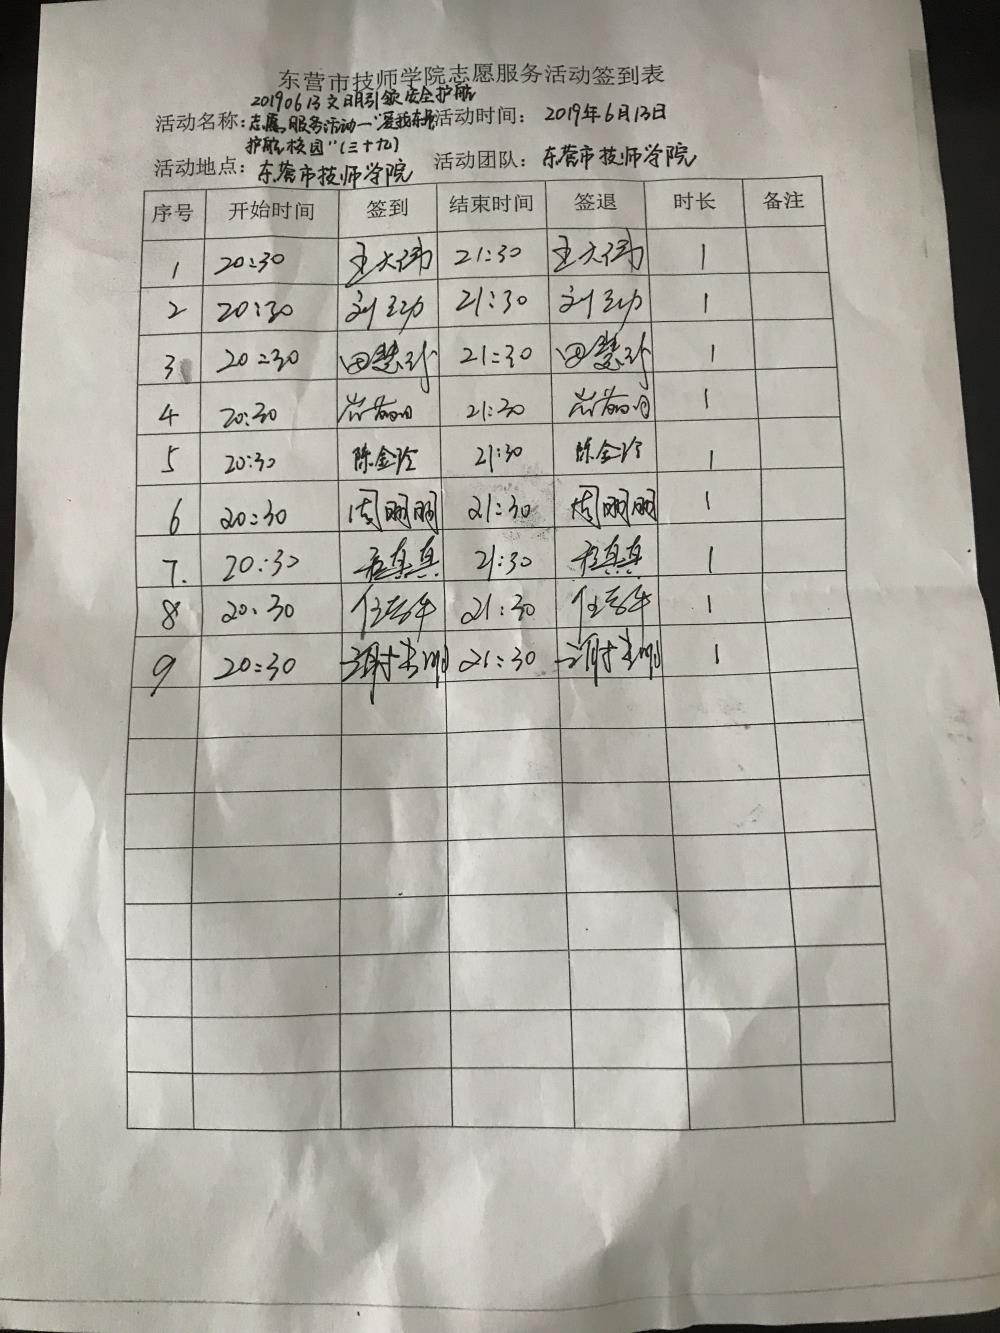 东营市技师学院志愿服务活动签到表
20190613文明引领安全护航
活动名称：志愿服务活动—"爱我东营 活动时间： 2019年6月13日
护航校园"(三十九)
活动地点：东营市技师学院 活动团队：东营市技师学院
序号 开始时间 签到 结束时间 签退 时长 备注
1 20:30 王大伟 21:30 王大伟 1
2 20:30 刘 21:30 刘 1
3 20:30 田慧 21:30 田慧 1
4 20:30 21:30 1
5 20:30 陈金玲 21:30 陈金玲 1
6 20:30 周朋朋 21:30 周朋朋 1
7. 20:30 程真真 21:30 程真真 1
8 20:30 任 21:30 任 1
9 20:30 谢 21:30 谢 1